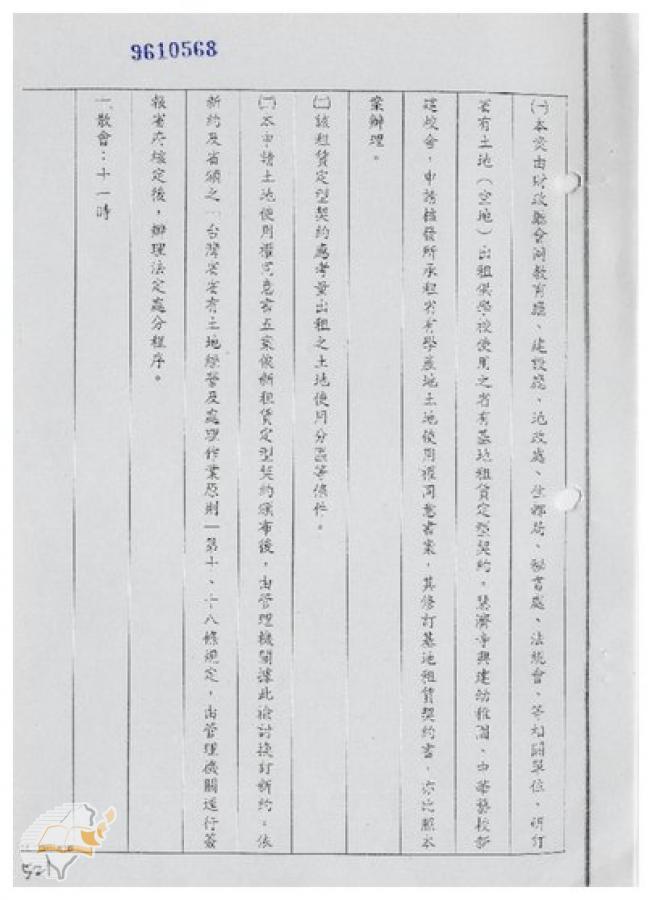 9610568
㈠本案由財政廳會同教育廳、建設廳、地政處、住都局、秘書處、法規會、等相關單位、研訂
省有土地（空地）出租供學校使用之省有基地租賃定型契約。慈濟寺興建幼稚園、中華藝校新
建校舍，申請核發所承租省有學產地土地使用權同意書案，其修訂基地租賃契約書，亦比照本
案辦理。
㈡該租賃定型契約應考量出租之土地使用分區等條件。
㈢本申請土地使用權同意書五案俟新租賃定型契約頒布後，由管理機關據此檢討換訂新約。依
新約及省頒之「台灣省省有土地經營及處理作業原則」第十、十八條規定，由管理機關逕行簽
報省府核定後，辦理法定處分程序。
一、散會：十一時
521